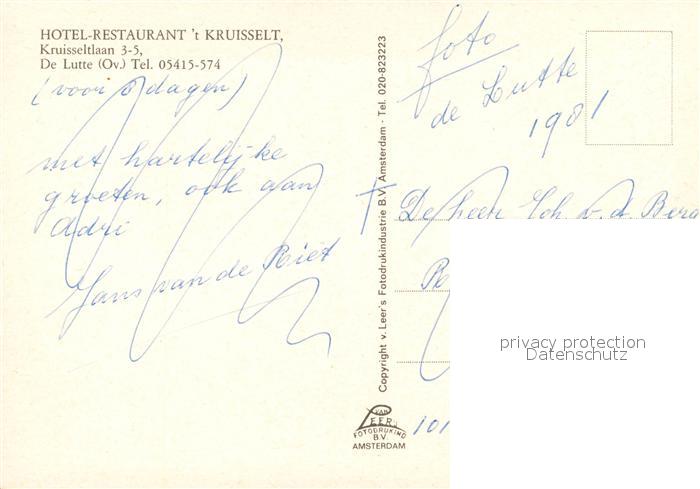 HOTEL-RESTAURANT 't KRUISSELT,
Kruisseltlaan 3-5,
De Lutte (Ov.) Tel. 05415-574
(voor dagen)
met hartelijke
groeten, ook aan
Adri
Hans van de Riet
Copyright v. Leer's Fotodrukindustrie B.V. Amsterdam - Tel. 020-823223
VAN
LEER
FOTODRUKIND
B.V.
AMSTERDAM
foto
de Lutte
1981
De heer Joh v.d. Berg
privacy protection
Datenschutz
101